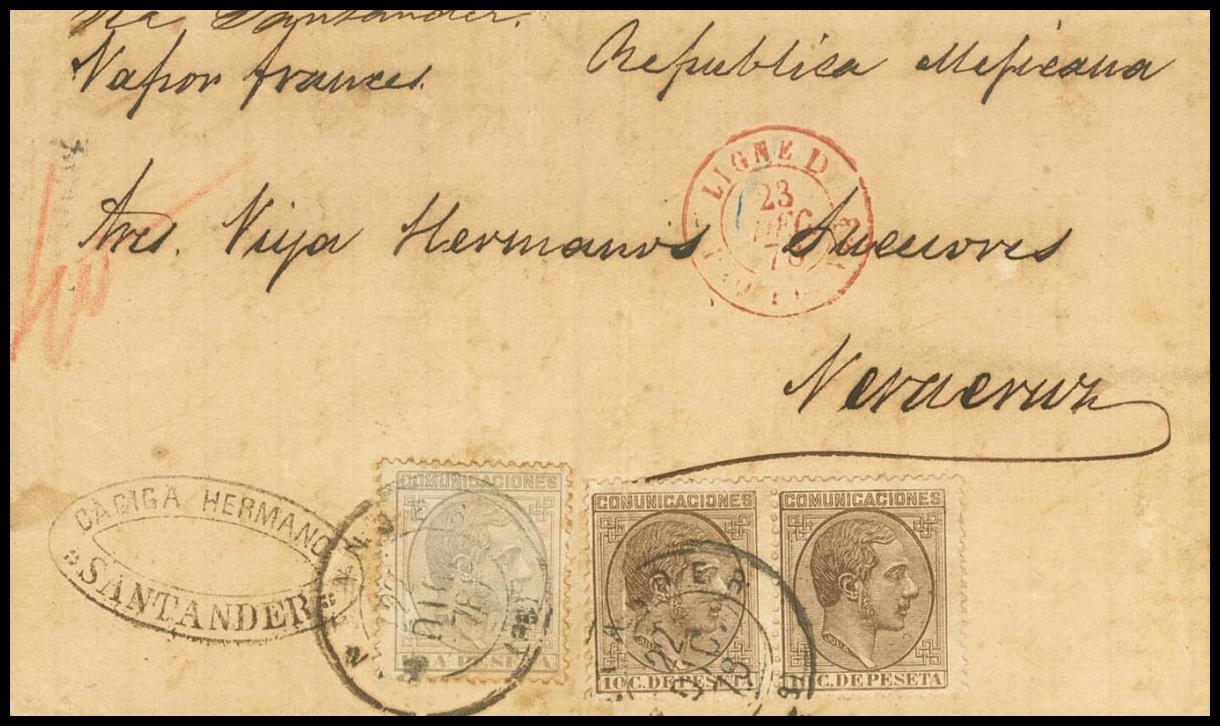 Via Santander.
Vapor frances.
Republica Mejicana
LIGNE D
23
DEC
78
Sres. Viija Hermanos Sucesores
Veracruz
CAGIGA HERMANO
SANTANDER
COMUNICACIONES
UNA PESETA
22
DIC
78
COMUNICACIONES
10 C. DE PESETA
COMUNICACIONES
10 C. DE PESETA
22
DIC.
78